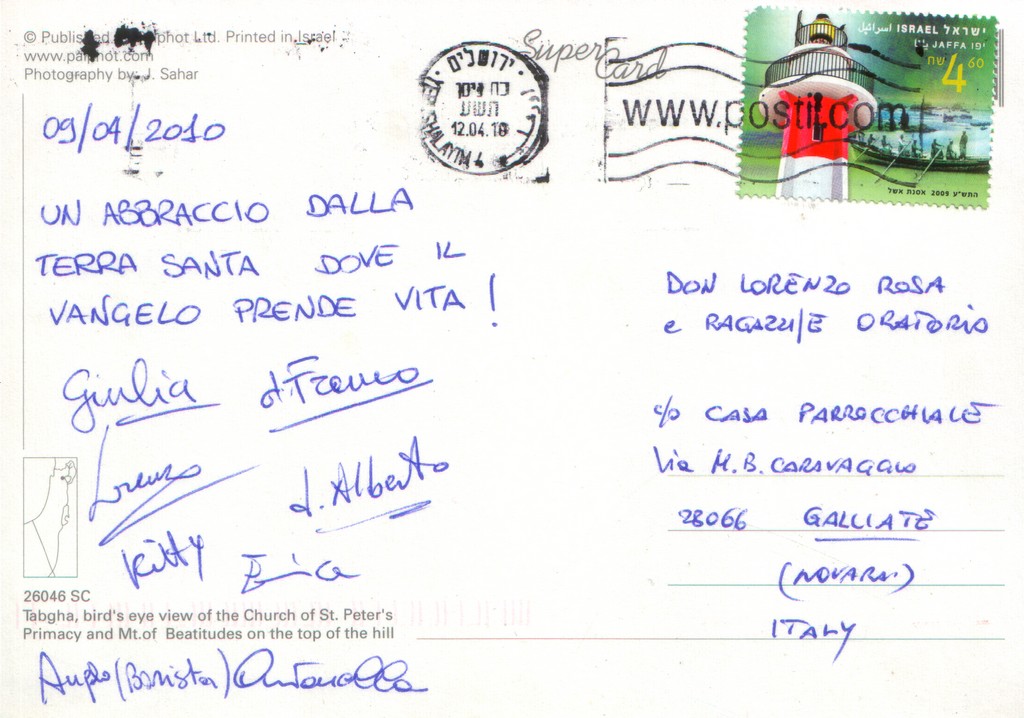 © Published Palphot Ltd. Printed in Israel
www.palphot.com
Photography by: J. Sahar
Super Card
ירושלים
12.04.10
www.postil.com
ישראל ISRAEL اسرائيل
יפו JAFFA يافا
שח 4.60
התש"ע 2009 אסנת אשל
09/04/2010
UN ABBRACCIO DALLA
TERRA SANTA DOVE IL
VANGELO PRENDE VITA!
Giulia d.Franco
Lorenzo d.Alberto
Kitty Erica
26046 SC
Tabgha, bird's eye view of the Church of St. Peter's
Primacy and Mt.of Beatitudes on the top of the hill
Angelo (Barista) Antonella
DON LORENZO ROSA
e RAGAZZI/E ORATORIO
c/o CASA PARROCCHIALE
Via M.B. CARAVAGGIO
28066 GALLIATE
(NOVARA)
ITALY